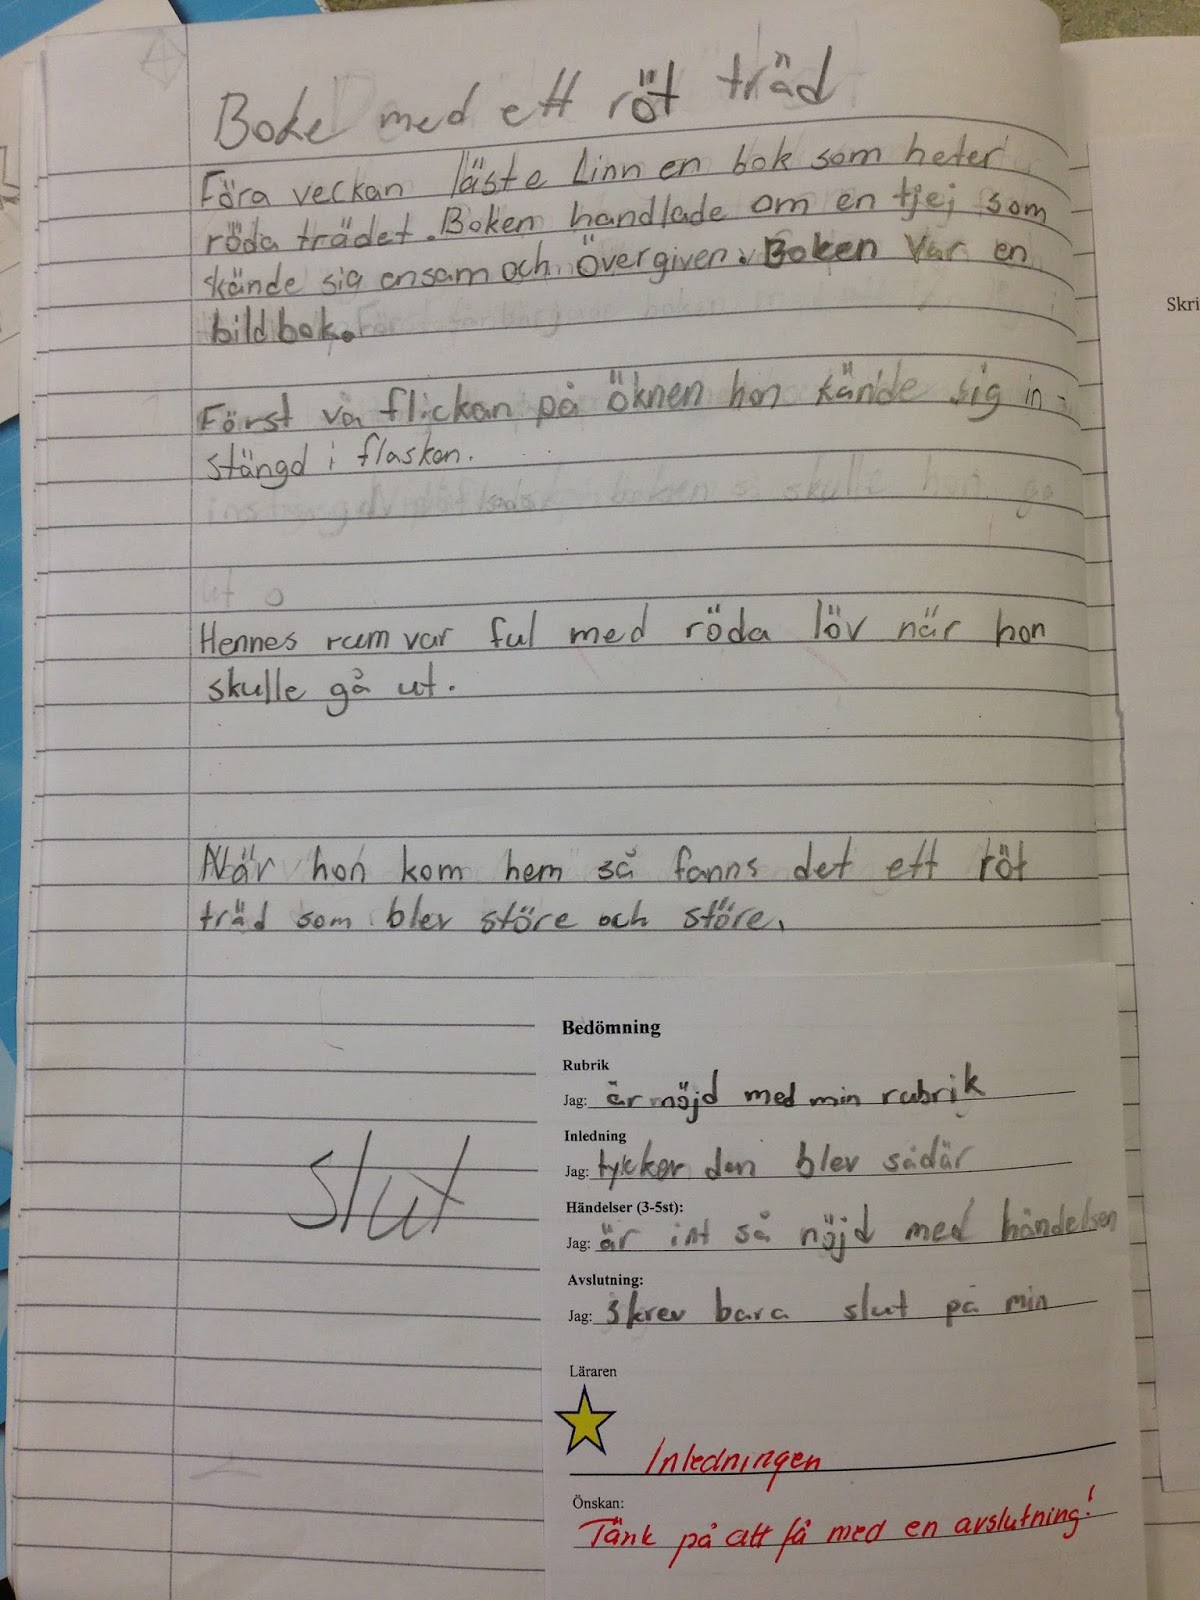 Boke med ett röt träd
Föra veckan läste Linn en bok som heter
röda trädet. Boken handlade om en tjej som
kände sig ensam och övergiven. Boken var en
bildbok.
Först va flickan på öknen hon kände sig in-
stängd i flaskan.
Hennes rum var ful med röda löv när hon
skulle gå ut.
När hon kom hem så fanns det ett röt
träd som blev störe och störe.
slut
Skri
Bedömning
Rubrik
Jag: är nöjd med min rubrik
Inledning
Jag: tykker den blev sådär
Händelser (3-5st):
Jag: är int så nöjd med händelsen
Avslutning:
Jag: skrev bara slut på min
Läraren
Inledningen
Önskan:
Tänk på att få med en avslutning!